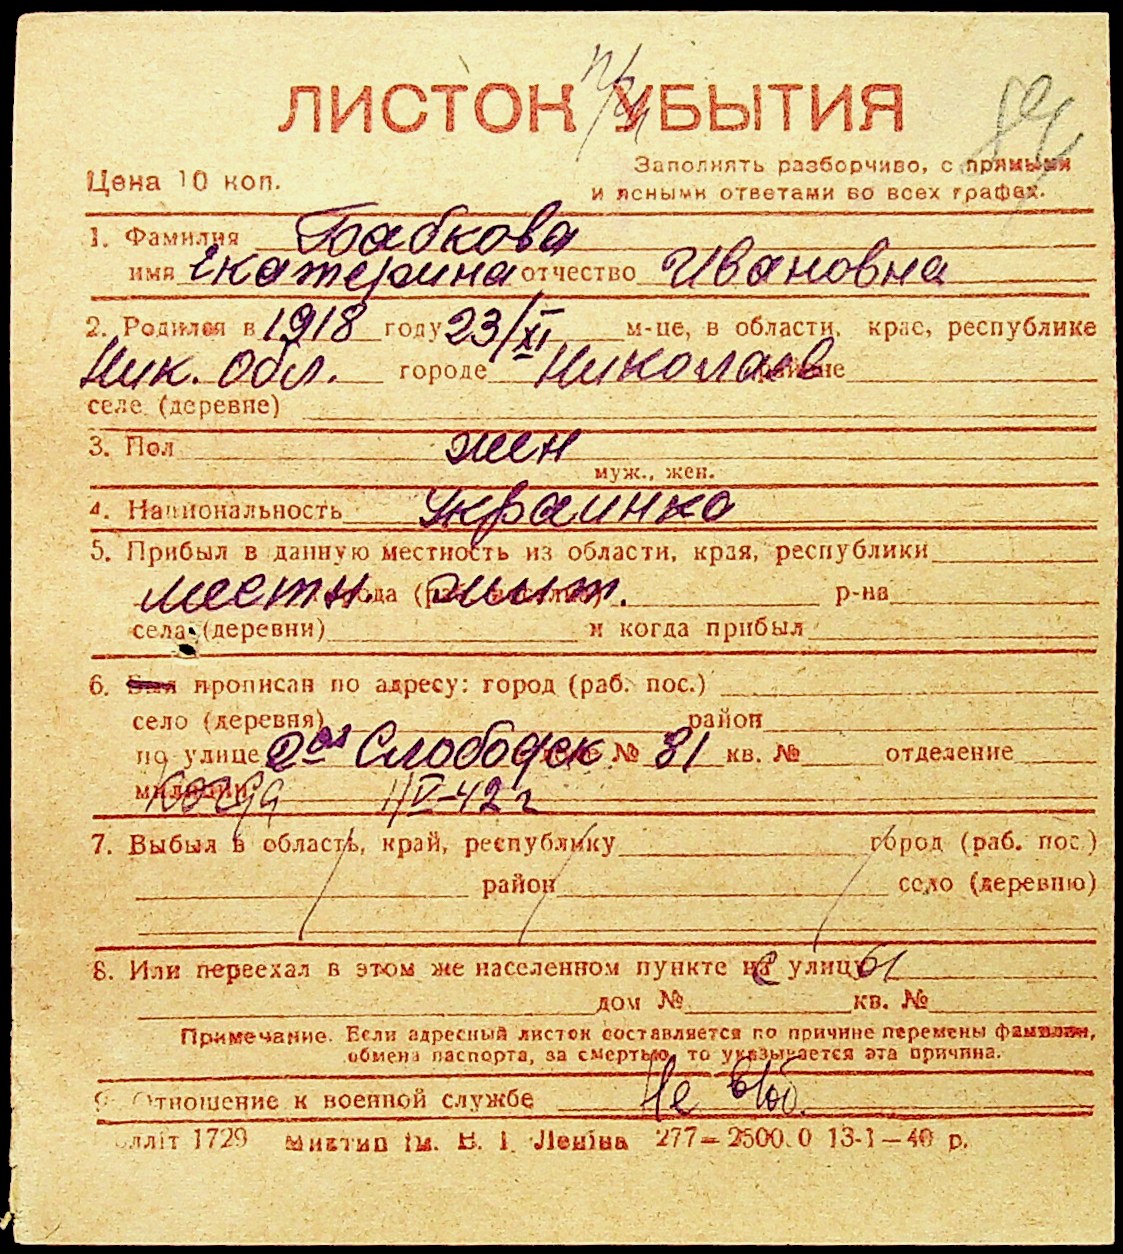 ЛИСТОК УБЫТИЯ
Цена 10 коп.
Заполнять разборчиво, с прямыми
и ясными ответами во всех графах.
1. Фамилия Бабкова
имя Екатерина отчество Ивановна
2. Родился в 1918 году 23/XI м-це, в области, крае, республике
Ник. Обл. городе Николаев районе
селе (деревне)
3. Пол жен
муж., жен.
4. Национальность украинка
5. Прибыл в данную местность из области, края, республики
местн. города (раб. поселка) жит. р-на
села (деревни) и когда прибыл
6. Был прописан по адресу: город (раб. пос.)
село (деревня) район
по улице 2ая Слободск № 81 кв. № отделение
милиции когда 1/IV-42 г
7. Выбыл в область, край, республику город (раб. пос.)
район село (деревню)
8. Или переехал в этом же населенном пункте на улицу
дом № кв. №
Примечание. Если адресный листок составляется по причине перемены фамилии,
обмена паспорта, за смертью, то указывается эта причина.
9. Отношение к военной службе Не
лліт 1729 Миктип ім. В. І. Леніна 277—2500.0 13-1—40 р.